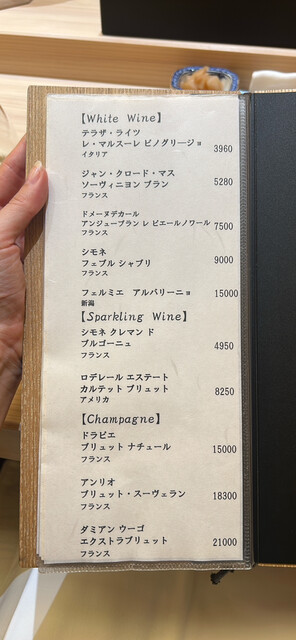 【White Wine】
テラザ・ライツ
レ・マルスーレ ピノグリージョ 3960
イタリア
ジャン・クロード・マス
ソーヴィニヨン ブラン 5280
フランス
ドメーヌデカール
アンジューブラン レ ピエールノワール 7500
フランス
シモネ
フェブル シャブリ 9000
フランス
フェルミエ アルバリーニョ 15000
新潟
【Sparkling Wine】
シモネ クレマン ド
ブルゴーニュ 4950
フランス
ロデレール エステート
カルテット ブリュット 8250
アメリカ
【Champagne】
ドラピエ
ブリュット ナチュール 15000
フランス
アンリオ
ブリュット・スーヴェラン 18300
フランス
ダミアン ウーゴ
エクストラブリュット 21000
フランス